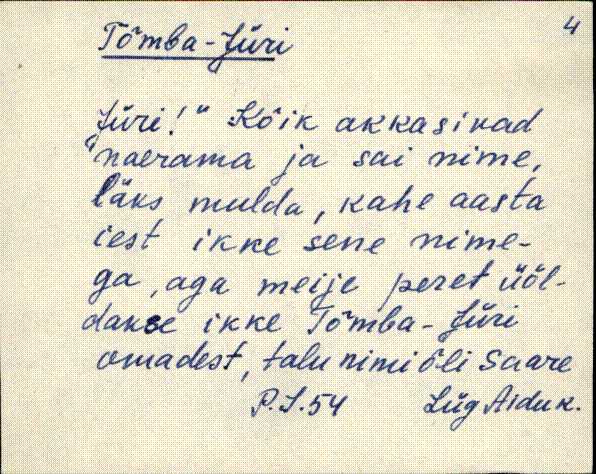 4
Tõmba-Jüri
Jüri!" Kõik akkasivad
"naerama ja sai nime,
läks mulda, kahe aasta
iest ikke sene nime-
ga, aga meije peret üöl-
dakse ikke Tõmba-Jüri
omadest, talu nimi õli Saare
P.S.54 Lüg Aiduk.